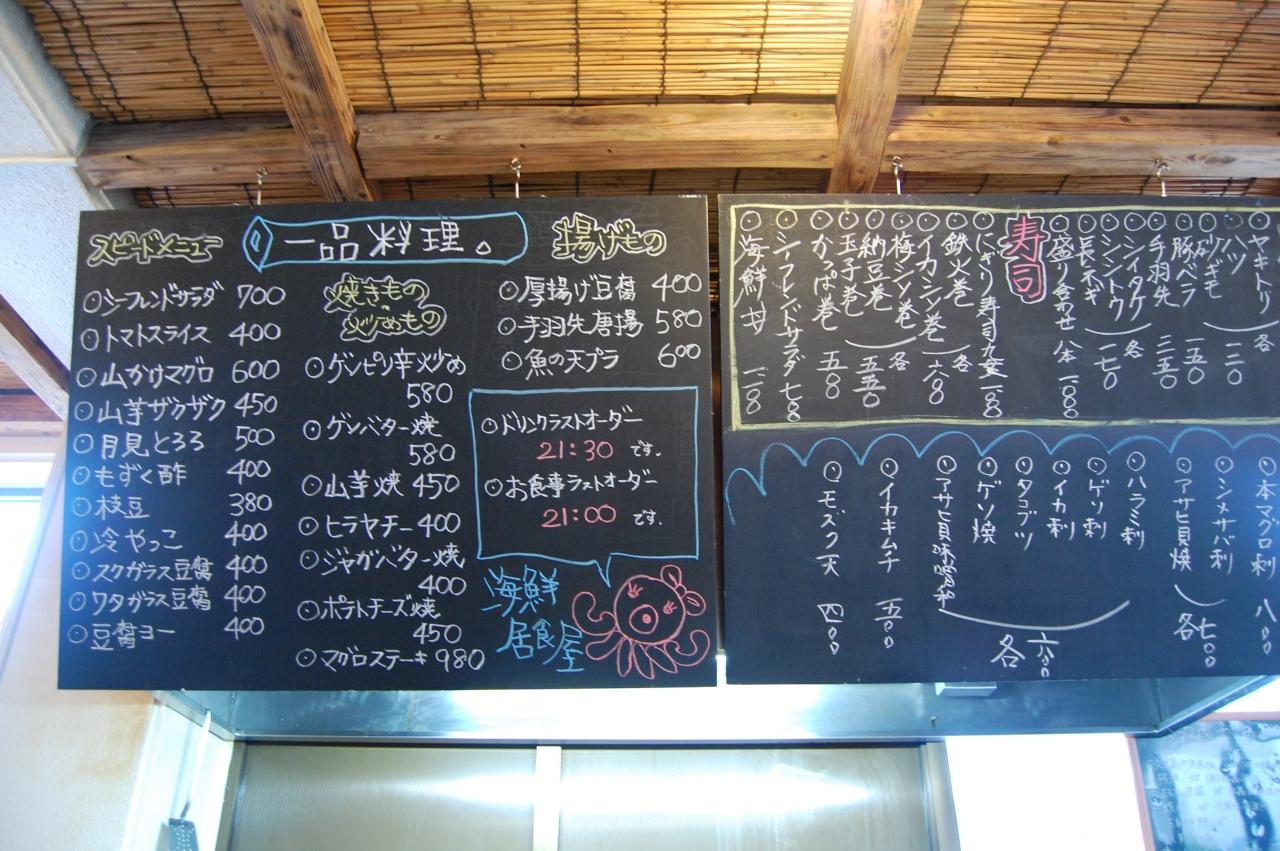 一品料理。
スピードメニュー
シーフレンドサラダ 700
トマトスライス 400
山かけマグロ 600
山芋ザクザク 450
月見とろろ 500
もずく酢 400
枝豆 380
冷やっこ 400
スクガラス豆腐 400
ワタガラス豆腐 400
豆腐ヨー 400
焼きもの
炒めもの
ゲンピリ辛炒め
580
ゲンバター焼
580
山芋焼 450
ヒラヤチー 400
ジャガバター焼
400
ポテトチーズ焼
450
マグロステーキ 980
揚げもの
厚揚げ豆腐 400
手羽先唐揚 580
魚の天プラ 600
ドリンクラストオーダー
21:30 です。
お食事ラストオーダー
21:00 です。
海鮮
居食屋
ヤキトリ
ハツ
ズギモ 一二〇
豚バラ 一五〇
手羽先 三五〇
シイタケ
シシントウ 各
長ネギ 一七〇
盛り合わせ 八本 一〇〇〇
寿司
にぎり寿司九貫
鉄火巻
イカシソ巻 各 六〇〇
梅シソ巻
納豆巻 各
玉子巻 五五〇
かっぱ巻 五〇〇
シーフレンドサラダ 七〇〇
海鮮丼
本マグロ刺 八〇〇
シメサバ刺
アサヒ貝焼
各七〇〇
ハラミ刺
ゲソ刺
イカ刺
タコブツ
ゲソ焼
アサヒ貝味噌
各六〇〇
イカキムチ 五〇〇
モズク天 四〇〇